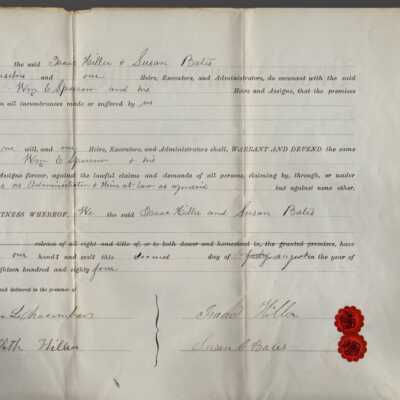 the said Isaac Hiller & Susan Bates
and our Heirs, Executors, and Administrators, do covenant with the said
Wm E Sparrow and his Heirs and Assigns, that the premises
all incumbrances made or suffered by us
we will, and our Heirs, Executors, and Administrators shall, WARRANT AND DEFEND the same
Wm E Sparrow & his
Assigns forever, against the lawful claims and demands of all persons, claiming by, through, or under
us as Administrator & Heirs at law as aforesaid but against none other.
WITNESS WHEREOF, We the said Isaac Hiller and Susan Bates
release of all right and title of, or to both dower and homestead in, the granted premises, have
our hands and seals this second day of August in the year of
eighteen hundred and eighty four
and delivered in the presence of
Isaac Hiller
Hiller
Susan C Bates